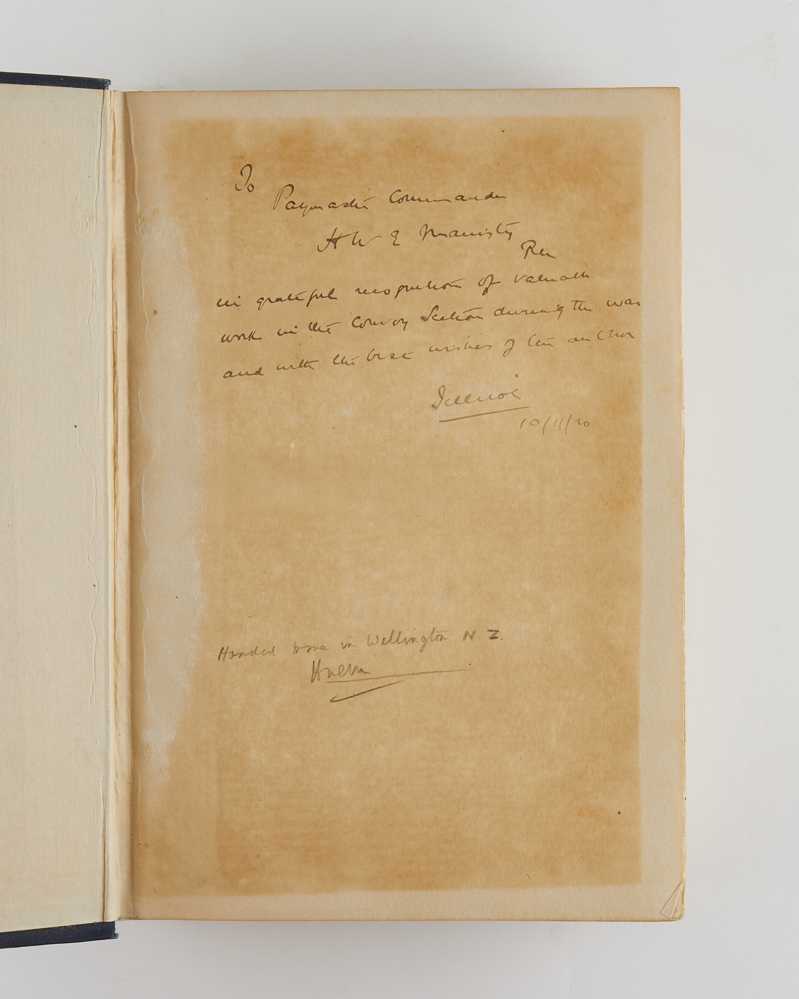 To
Paymaster Commander
H W E Manisty
RN
in grateful recognition of valuable
work in the Convoy Section during the war
and with the best wishes of the author
Jellicoe
10/11/20
Handed me in Wellington N Z.